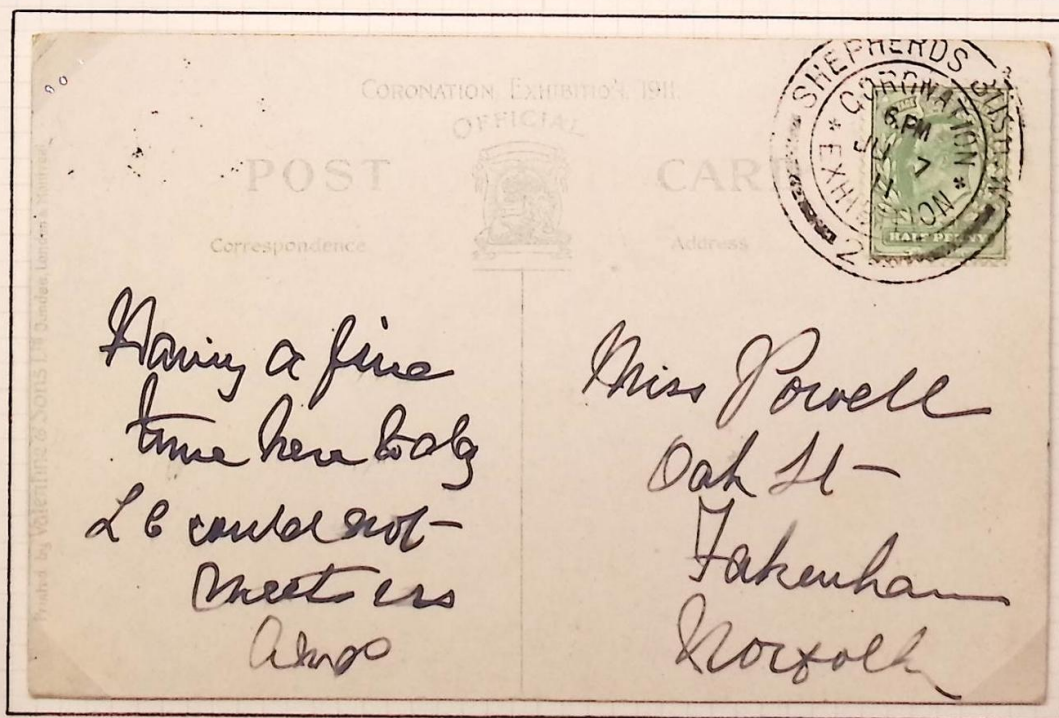 CORONATION EXHIBITION, 1911.
OFFICIAL
POST CARD
Correspondence
Address
SHEPHERDS BUSH W
CORONATION * EXHIBITION *
6.PM
JU 7
11
2
HALFPENNY
Printed by Valentine & Sons Ltd Dundee, London & Montreal
Having a fine
time here today
L C could not
meet us
Miss Powell
Oak St
Fakenham
Norfolk